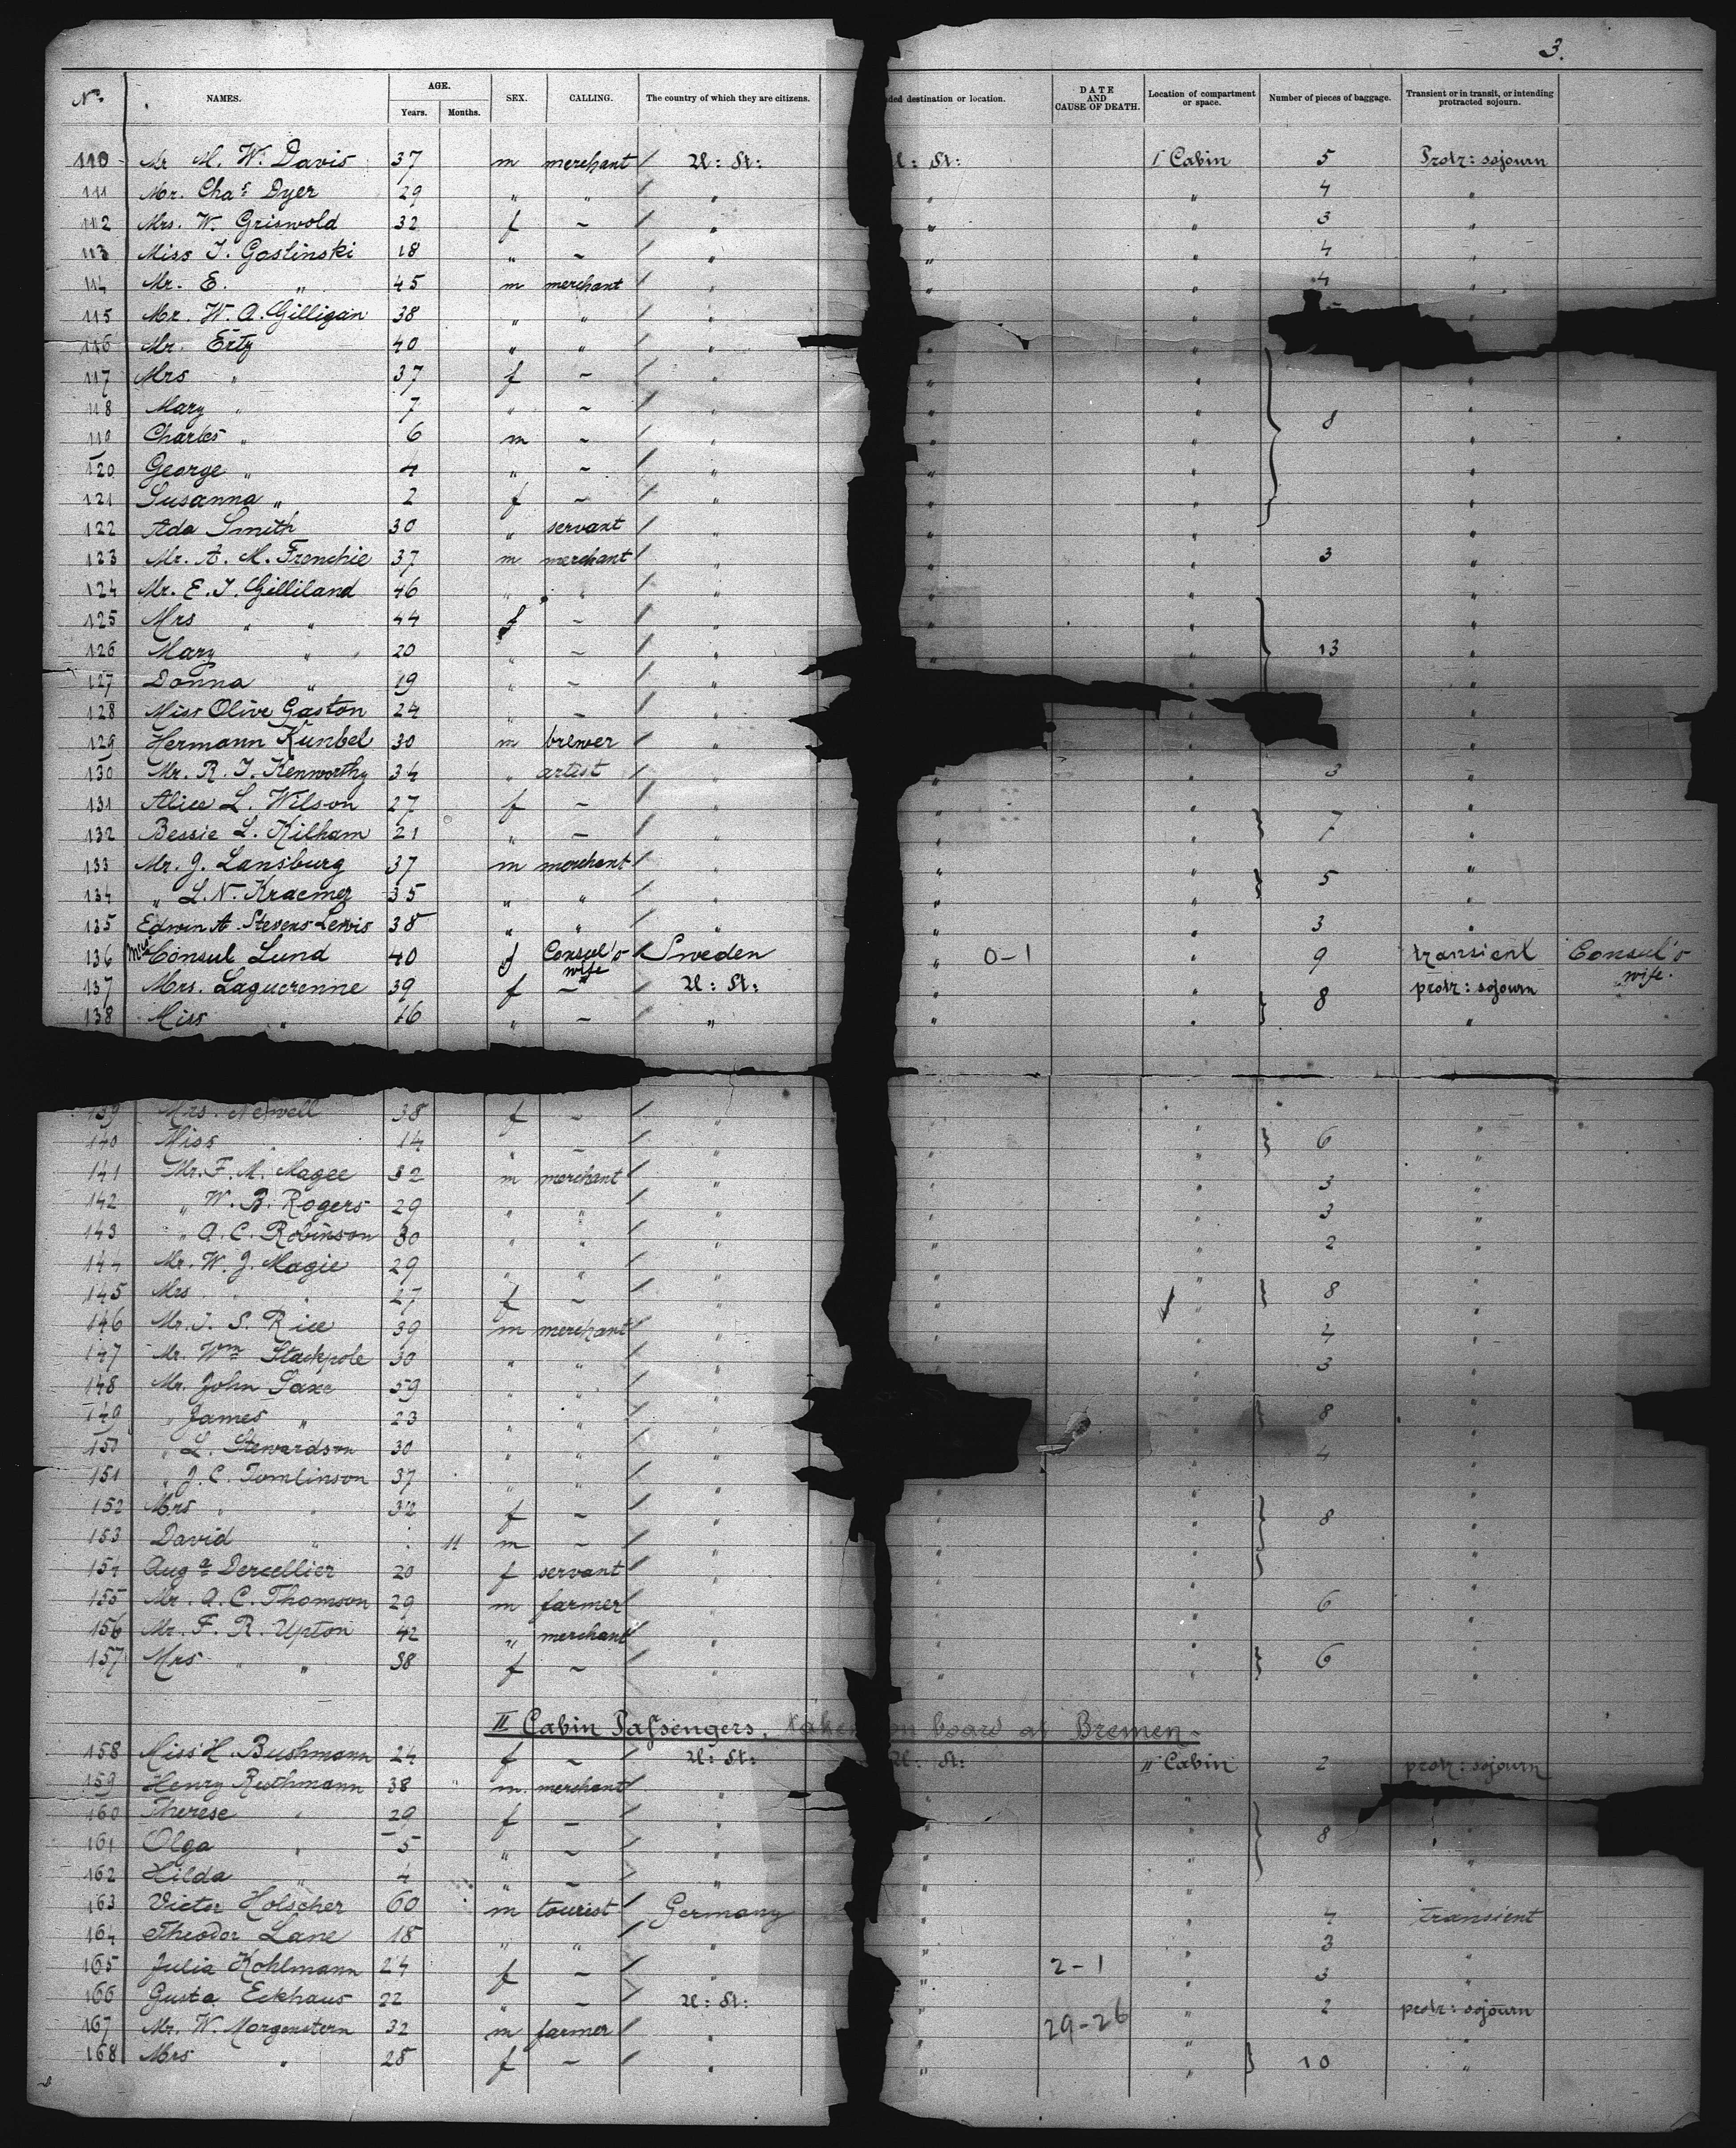 3.
No. NAMES. AGE. Years. Months. SEX. CALLING. The country of which they are citizens. ded destination or location. DATE AND CAUSE OF DEATH. Location of compartment or space. Number of pieces of baggage. Transient or in transit, or intending protracted sojourn.
110 Mr M. W. Davis 37 m merchant / U: St: U: St: I Cabin 5 Protr: sojourn
111 Mr. Chas Dyer 29 " " / " " " 4 "
112 Mrs. W. Griswold 32 f – / " " " 3 "
113 Miss J. Goslinski 18 " – / " " " 4 "
114 Mr. E. " 45 m merchant / " " " 4 "
115 Mr. W. A. Gilligan 38 " " / " " "
116 Mr. Ertz 40 " " / " " "
117 Mrs " 37 f – / " " " "
118 Mary " 7 " – / " " " 8 "
119 Charles " 6 m – / " " " "
120 George " 4 " – / " " " "
121 Susanna " 2 f – / " " " "
122 Ada Smith 30 " servant / " " " "
123 Mr. A. M. Frenchie 37 m merchant / " " " 3 "
124 Mr. E. J. Gilliland 46 " " / " " " "
125 Mrs " " 44 f – / " " " "
126 Mary " 20 " – / " " " 13 "
127 Donna " 19 " – / " " "
128 Miss Olive Gaston 24 " – / " " "
129 Hermann Kunbel 30 m brewer / " " "
130 Mr. R. J. Kenworthy 34 " artist / " " " 3 "
131 Alice L. Wilson 27 f – / " " " "
132 Bessie L. Kilham 21 " – / " " " 7 "
133 Mr. J. Lansburg 37 m merchant / " " " "
134 " L. N. Kraemer 35 " " / " " " 5 "
135 Edwin A. Stevens Lewis 38 " " / " " " 3 "
136 Mrs Consul Lund 40 f Consul's wife Sweden " 0-1 " 9 transient Consul's wife.
137 Mrs. Laguerenne 39 f – U: St: " " 8 protr: sojourn
138 Miss " 16 " – " " " "
139 Mrs. Newell 38 f – / " " "
140 Miss " 14 " – / " " " 6 "
141 Mr. F. M. Magee 32 m merchant / " " " 3 "
142 " W. B. Rogers 29 " " / " " " 3 "
143 " A. C. Robinson 30 " " / " " " 2 "
144 Mr. W. J. Magie 29 " " / " " "
145 Mrs " " 27 f – / " " " 8 "
146 Mr. J. S. Rice 39 m merchant / " " " 4 "
147 Mr. Wm Stackpole 30 " " / " " " 3 "
148 Mr. John Saxe 59 " " / " " "
149 " James " 23 " " / " " 8 "
150 " L. Stewardson 30 " " / " " 4 "
151 " J. C. Tomlinson 37 " " / " " "
152 Mrs " " 32 f – / " " " 8 "
153 David " 11 m – / " " " "
154 Auga Dercellier 20 f servant / " " " "
155 Mr. A. C. Thomson 29 m farmer / " " " 6 "
156 Mr. F. R. Upton 42 " merchant / " " " "
157 Mrs " " 38 f – / " " " 6 "
II Cabin Passengers. taken on board at Bremen.
158 Miss H. Bushmann 24 f – U: St: U: St: II Cabin 2 protr: sojourn
159 Henry Ruthmann 38 m merchant / " " "
160 Therese " 29 f – / " " "
161 Olga " 5 " – / " " " 8 "
162 Hilda " 4 " – " " " "
163 Victor Holscher 60 m tourist / Germany " " 4 transient
164 Theodor Lane 18 " " / " " " 3 "
165 Julia Kohlmann 24 f – " " 2-1 " 3 "
166 Gusta Eckhaus 22 " – U: St: " " 2 protr: sojourn
167 Mr. W. Morgenstern 32 m farmer / " " 29-26 " "
168 Mrs " 28 f – / " " " 10 "